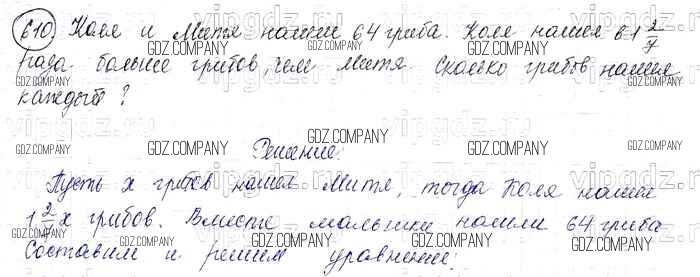 610) Коля и Митя нашли 64 гриба. Коля нашел в 1 2/7
раза больше грибов, чем Митя. Сколько грибов нашел
каждый?
Решение:
Пусть x грибов нашел Митя, тогда Коля нашел
1 2/7 x грибов. Вместе мальчики нашли 64 гриба
Составим и решим уравнение:
GDZ.COMPANY
vipgdz.ru